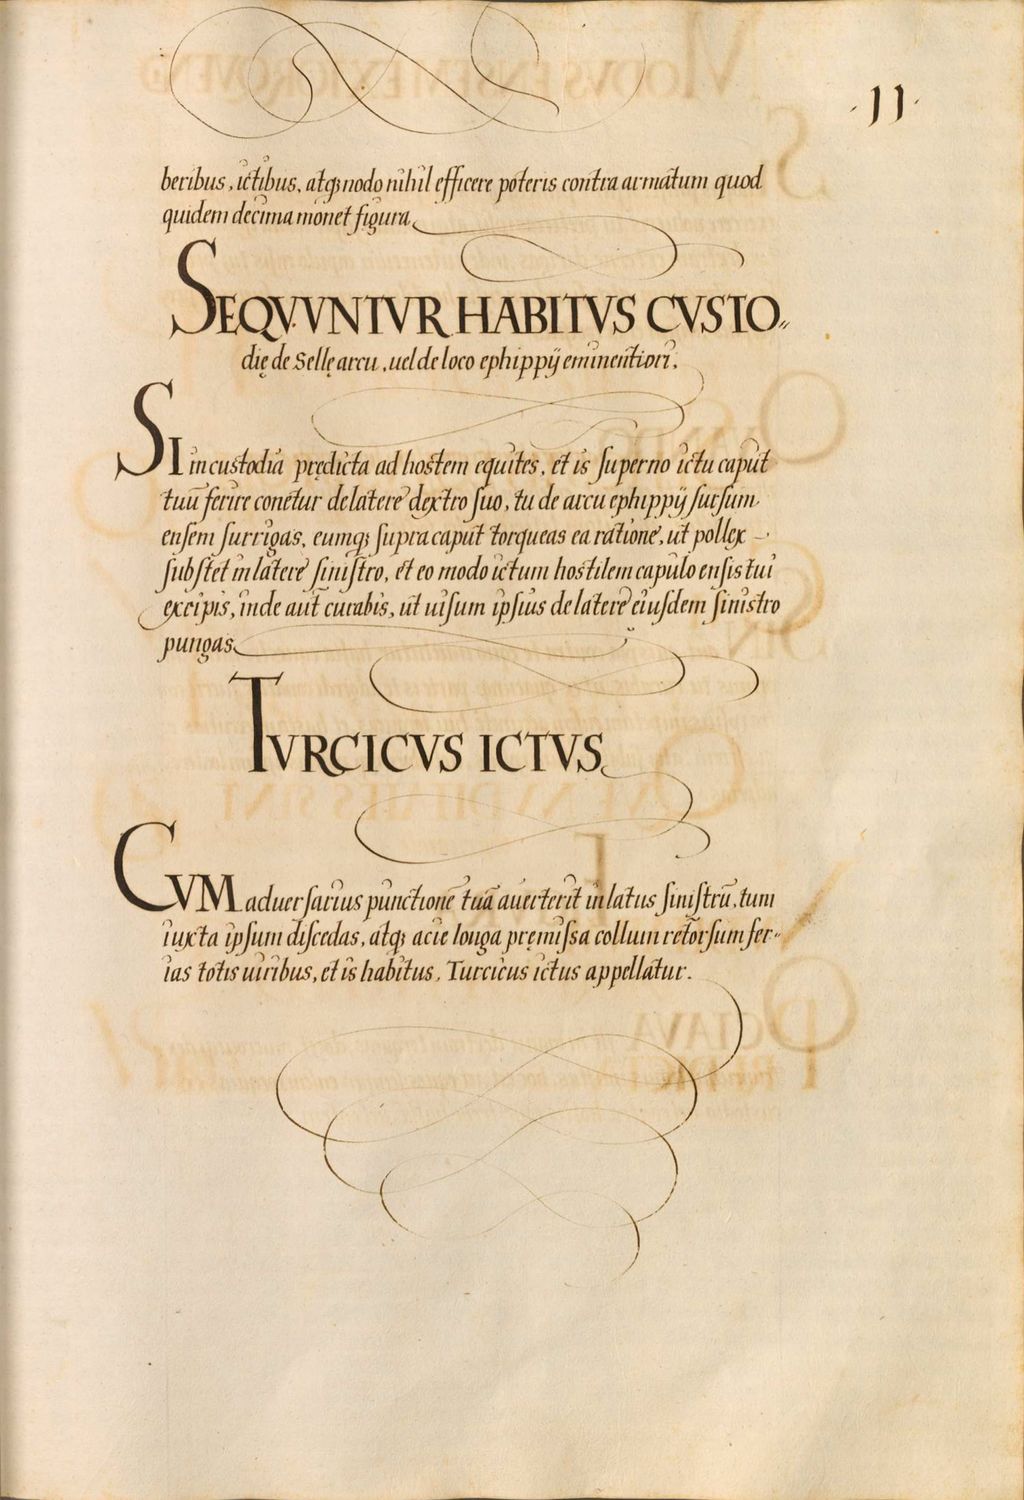 ·11·
beribus, ictibus, atq; nodo nihil efficere poteris contra armatum quod
quidem decima monet figura
SEQVVNTVR HABITVS CVSTO„
dię de Sellę arcu, uel de loco ephippÿ eminentiori.
SI in custodia prędicta ad hostem equites, et is superno ictu caput
tuũ ferire conetur de latere dextro suo, tu de arcu ephippÿ sursum
ensem surrigas, eumq; supra caput torqueas ea ratione, ut pollex –
substet in latere sinistro, et eo modo ictum hostilem capulo ensis tui
excipis, inde aut̃ curabis, ut uisum ipsius de latere eiusdem sinistro
pungas
TVRCICVS ICTVS
CVM aduersarius punctionẽ tuã auerterit in latus sinistrũ, tum
iuxta ipsum discedas, atq; acie longa pręmissa collum retorsum fer„
ias totis uiribus, et is habitus, Turcicus ictus appellatur.